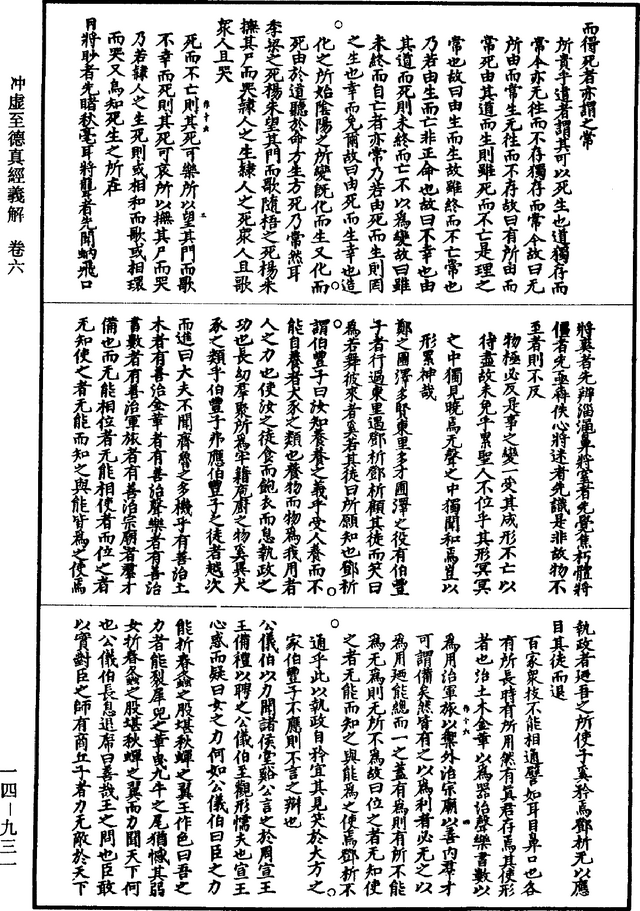 冲虛至德真經義解 卷六
一四—九三一
而得死者亦謂之常
所貴乎道者謂其可以死生也道獨存而
常今亦无往而不存獨存而常今故曰无
所由而常生无往而不存故曰有所由而
常死由其道而生則雖死而不亡是理之
常也故曰由生而生故雖終而不亡常也
乃若由生而亡非正命也故曰不幸也由
其道而死則未終而亡不以為變故曰雖
未終而自亡者亦常乃若由死而生則罔
之生也幸而免爾故曰由死而生幸也造
化之所始陰陽之所變既化而生又化而
死由於道聽於命方生方死乃常然耳
季梁之死楊朱望其門而歌隨梧之死楊朱
撫其尸而哭隸人之生隸人之死眾人且歌
眾人且哭
死而不亡則其死可樂所以望其門而歌
不幸而死則其死可哀所以撫其尸而哭
乃若隸人之生死則或相和而歌或相環
而哭又烏知死生之所在
目將眇者先睹秋毫耳將聾者先聞蚋飛口
將爽者先辨淄澠鼻將窒者先覺焦朽體將
僵者先亟犇佚心將迷者先識是非故物不
至者則不反
物極必反是事之變一受其成形不亡以
待盡故未免乎累聖人不位乎其形冥冥
之中獨見曉焉无聲之中獨聞和焉豈以
形累神哉
鄭之圃澤多賢東里多才圃澤之役有伯豐
子者行過東里遇鄧析鄧析顧其徒而笑曰
為若舞彼來者奚若其徒曰所願知也鄧析
謂伯豐子曰汝知養養之義乎受人養而不
能自養者犬豕之類也養物而物為我用者
人之力也使汝之徒食而飽衣而息執政之
功也長幼羣聚而為牢藉庖廚之物奚異犬
豕之類乎伯豐子弗應伯豐子之從者越次
而進曰大夫不聞齊魯之多機乎有善治土
木者有善治金革者有善治聲樂者有善治
書數者有善治軍旅者有善治宗廟者羣才
備也而无能相位者无能相使者而位之者
无知使之者无能而知之與能皆為之使焉
執政者廼吾之所使子奚矜焉鄧析无以應
目其徒而退
百家眾技不能相通譬如耳目鼻口也各
有所長時有所用然有真君存焉其使形
者也治土木金革以為器治聲樂書數以
為用治軍旅以禦外治宗廟以善內羣才
可謂備矣然皆有之以為利者必无之以
為用廼能總而一之蓋有為則有所不能
為无為則无所不為故曰位之者无知使
之者无能而知之與能為之使焉鄧析不
通乎此以執政自矜宜其見笑於大方之
家伯豐子不應則不言之辯也
公儀伯以力聞諸侯堂谿公言之於周宣王
王備禮以聘之公儀伯至觀形懦夫也宣王
心惑而疑曰女之力何如公儀伯曰臣之力
能折春螽之股堪秋蟬之翼王作色曰吾之
力者能裂犀兕之革曳九牛之尾猶憾其弱
女折春螽之股堪秋蟬之翼而力聞天下何
也公儀伯長息退席曰善哉王之問也臣敢
以實對臣之師有商丘子者力无敵於天下